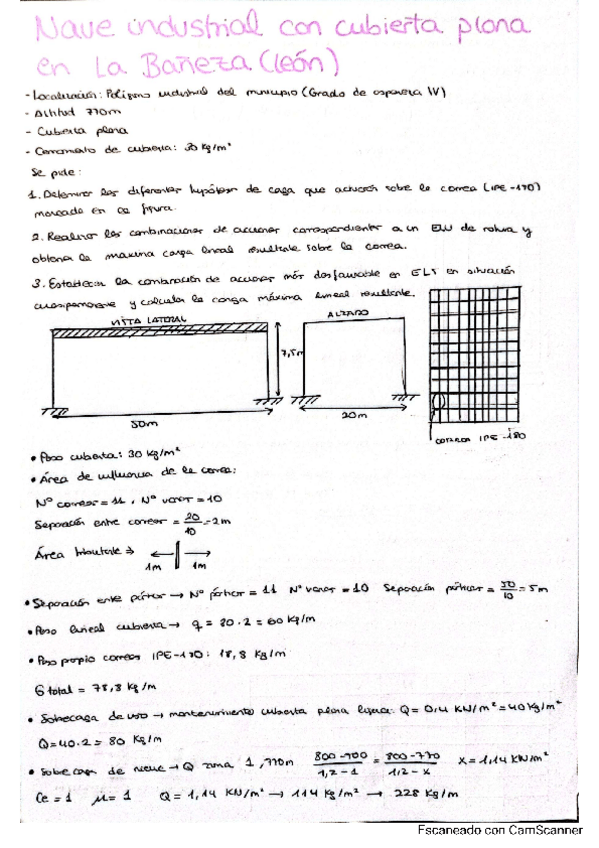 Nave industrial con cubierta plana
en La Bañeza (León)
- Localización: Polígono industrial del municipio (Grado de aspereza IV)
- Altitud 770m
- Cubierta plana
- Cerramiento de cubierta: 30 kg/m²
Se pide:
1. Determinar las diferentes hipótesis de carga que actuarán sobre la correa (IPE-180)
marcada en la figura.
2. Realizar las combinaciones de acciones correspondientes a un ELU de rotura y
obtener la máxima carga lineal resultante sobre la correa.
3. Establecer la combinación de acciones más desfavorable en ELS en situación
cuasipermanente y calcular la carga máxima lineal resultante.
VISTA LATERAL
ALZADO
7,5m
50m
20m
CORREA IPE-180
• Peso cubierta: 30 kg/m²
• Área de influencia de la correa:
Nº correas = 11, Nº vanos = 10
Separación entre correas = 20/10 = 2m
Área tributaria →
1m 1m
• Separación entre pórticos → Nº pórticos = 11 Nº vanos = 10 Separación pórticos = 50/10 = 5m
• Peso lineal cubierta → q = 30·2 = 60 kg/m
• Peso propio correas IPE-180: 18,8 kg/m
G total = 78,8 kg/m
• Sobrecarga de uso → mantenimiento cubierta plana ligera: Q = 0,4 KN/m² = 40 kg/m²
Q = 40·2 = 80 kg/m
• Sobrecarga de nieve → Q zona 1, 770m 800-700/1,2-1 = 800-770/1,2-x x = 1,14 KN/m²
Ce = 1 μ = 1 Q = 1,14 KN/m² → 114 kg/m² → 228 kg/m
Escaneado con CamScanner